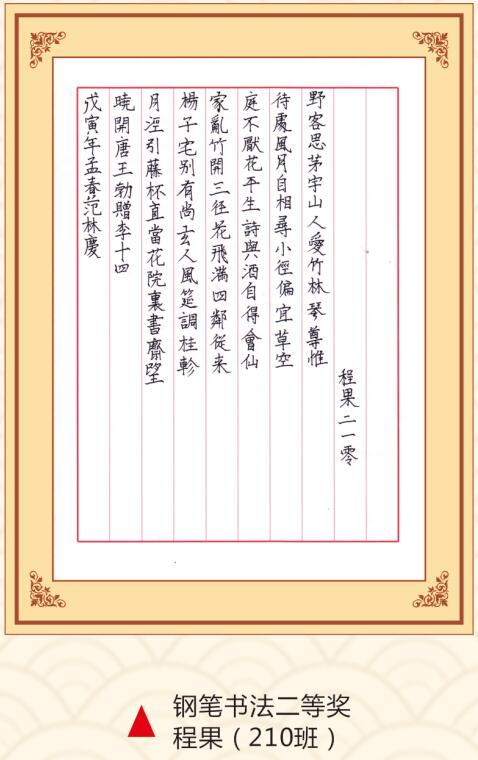 程果二一零
野客思茅宇山人愛竹林琴尊惟
待處風月自相尋小徑偏宜草空
庭不厭花平生詩與酒自得會仙
家亂竹開三徑花飛滿四鄰從来
楊子宅别有尚玄人風筵調桂軫
月淫引藤杯直當花院裏書齋望
曉開唐王勃贈李十四
戊寅年孟春范林慶
钢笔书法二等奖
程果（210班）